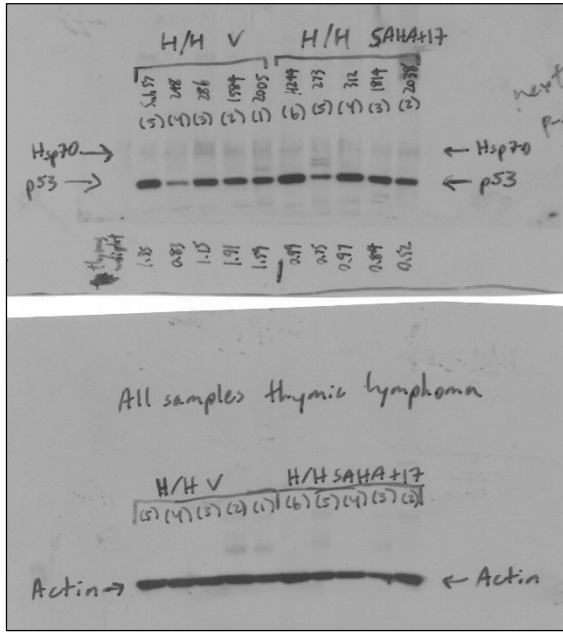 H/H V H/H SAHA+17
248 286 1584 2005 4244 273 312 1814 2038
(5) (4) (3) (2) (1) (6) (5) (4) (3) (2)
next
Hsp70 → ← Hsp70
p53 → ← p53
thymus weight 1.35 0.83 1.15 1.91 1.59 0.89 0.75 0.97 0.84 0.52
All samples thymic lymphoma
H/H V H/H SAHA+17
(5) (4) (3) (2) (1) (6) (5) (4) (3) (2)
Actin → ← Actin